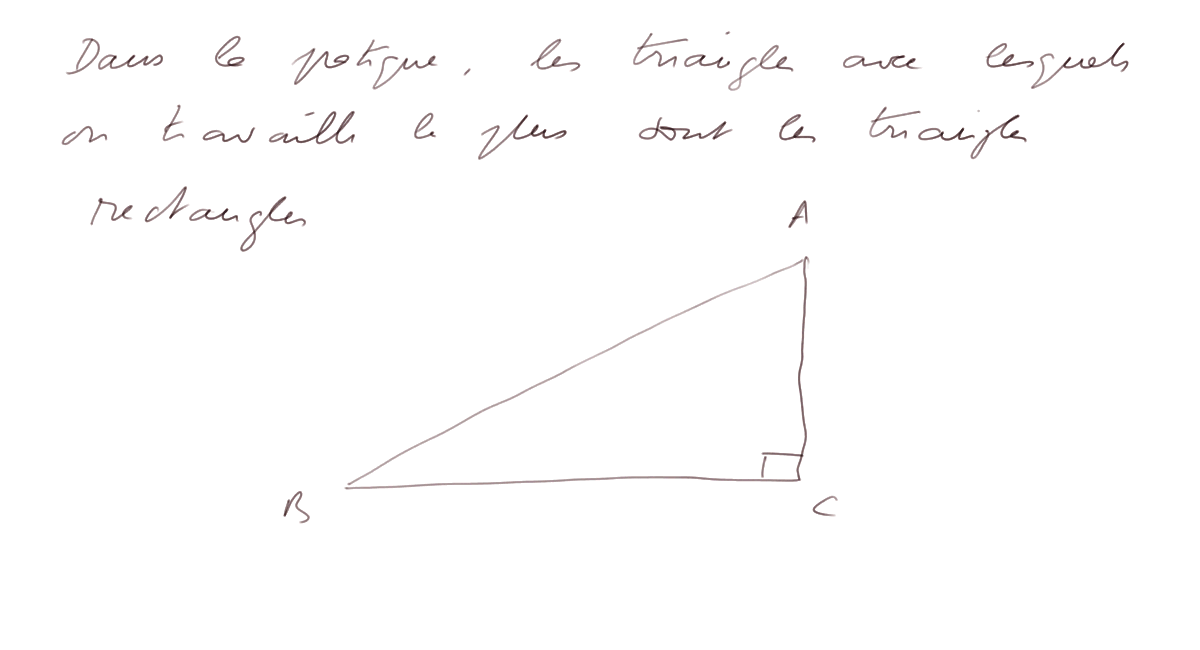 Dans la pratique, les triangles avec lesquels
on travaille le plus sont les triangles
rectangles
A
B
C